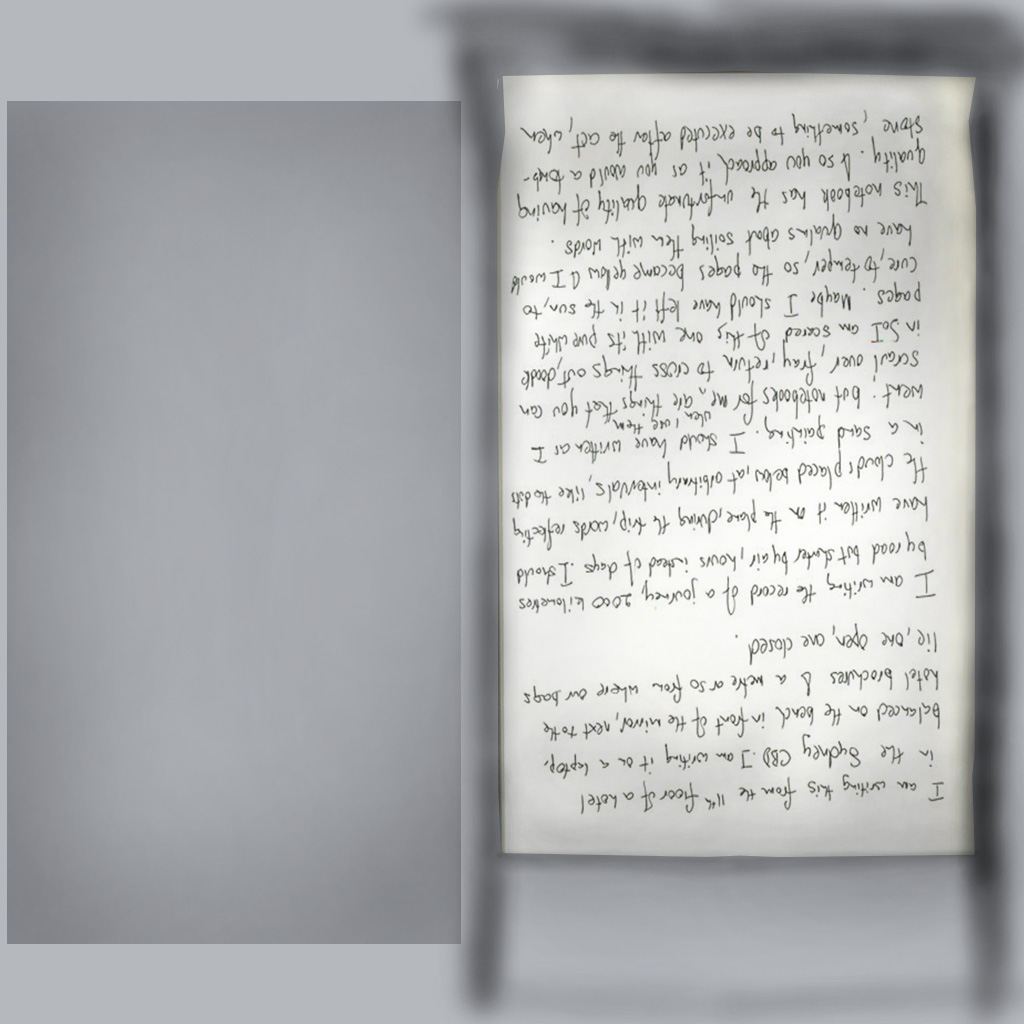 I am writing this from the 11th floor of a hotel
in the Sydney CBD. I am writing it on a laptop,
balanced on the bench in front of the mirror, next to the
hotel brochures & a metre or so from where our bags
lie, one open, one closed.
I am writing the record of a journey, 2000 kilometres
by road but shorter by air, hours instead of days. I should
have written it on the plane, during the trip, words reflecting
the clouds placed below, at arbitrary intervals, like the dots
in a sand painting. I should have written as I
went; but notebooks for me, when I use them are things that you can
scrawl over, fray, return to cross things out, doodle
in So I am scared of this one with its pure white
pages. Maybe I should have left it in the sun, to
cure, to temper, so the pages became yellow & I would
have no qualms about soiling them with words.
This notebook has the unfortunate quality of having
quality. & so you approach it as you would a tomb-
stone, something to be executed after the act, when